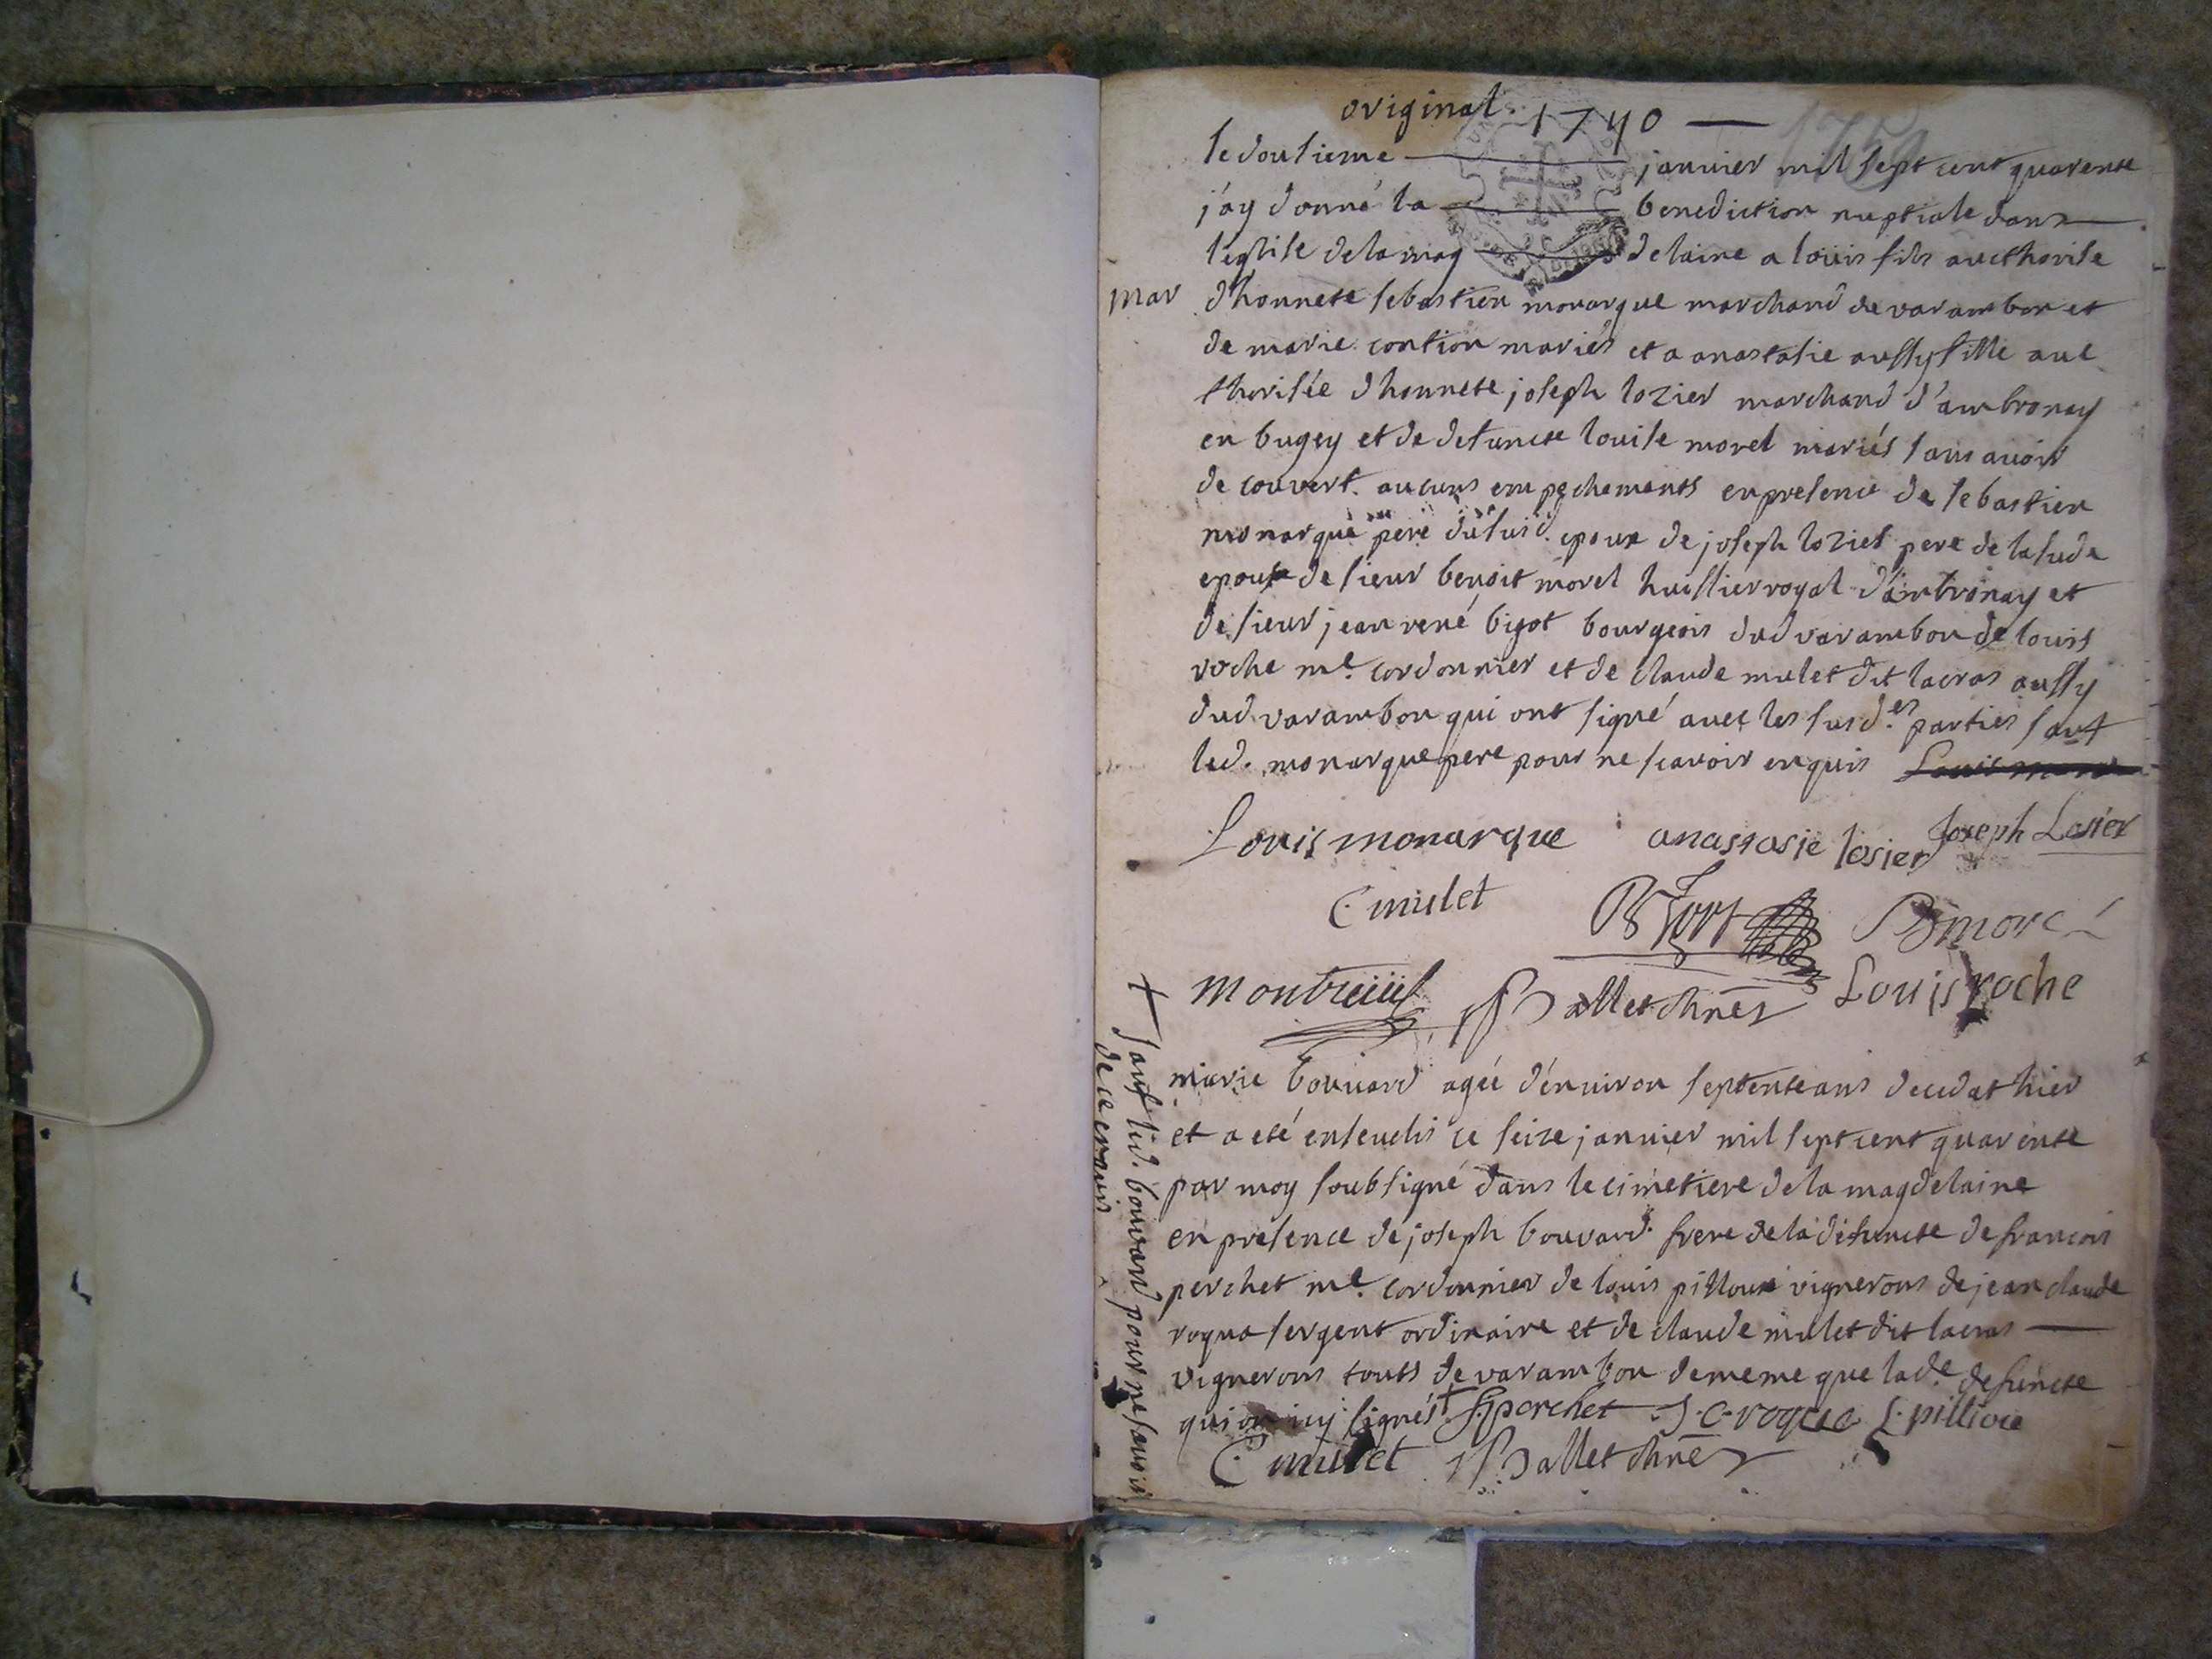 original. 1740
le dousieme janvier mil sept cent quarente
j'ay donné la benediction nuptiale dans
l'eglise de la mag delaine a louis fils aucthorise
mar d'honnete sebastien monarque marchand de varambon et
de marie contion mariés et a anastasie aussy fille auc
thorisée d'honnete joseph lozier marchand d'ambronay
en bugey et de defuncte louise morel mariés sans avoir
decouvert aucuns empechements en presence de sebastien
monarque pere du susd. epoux de joseph lozier pere de la susde
epouse de sieur benoit morel huissier royal d'ambronay et
de sieur jean rené bigot bourgeois dud varambon de louis
roche me. cordonnier et de claude mulet dit lacras aussy
dud. varambon qui ont signé avec les susd.es parties sauf
led. monarque pere pour ne scavoir enquis
Louis monarque anastasie losier Joseph Losier
C mulet B morel
Louis roche
Ballet
marie bouvard agée d'environ septente ans deceda hier
et a eté enseveli ce seize janvier mil sept cent quarente
par moy soubsigné dans le cimetiere de la magdelaine
en presence de joseph bouvard frere de la defuncte de francois
perchet me. cordonnier de louis pilloux vignerons de jean claude
roqua sergent ordinaire et de claude mulet dit lacras
vignerons touts de varambon de meme que lade. defuncte
qui ont icy signés + f perchet J. C. roqua L. pilliou
C mulet Ballet
+ sauf led. bouvard pour ne scavoir
de ce enquis